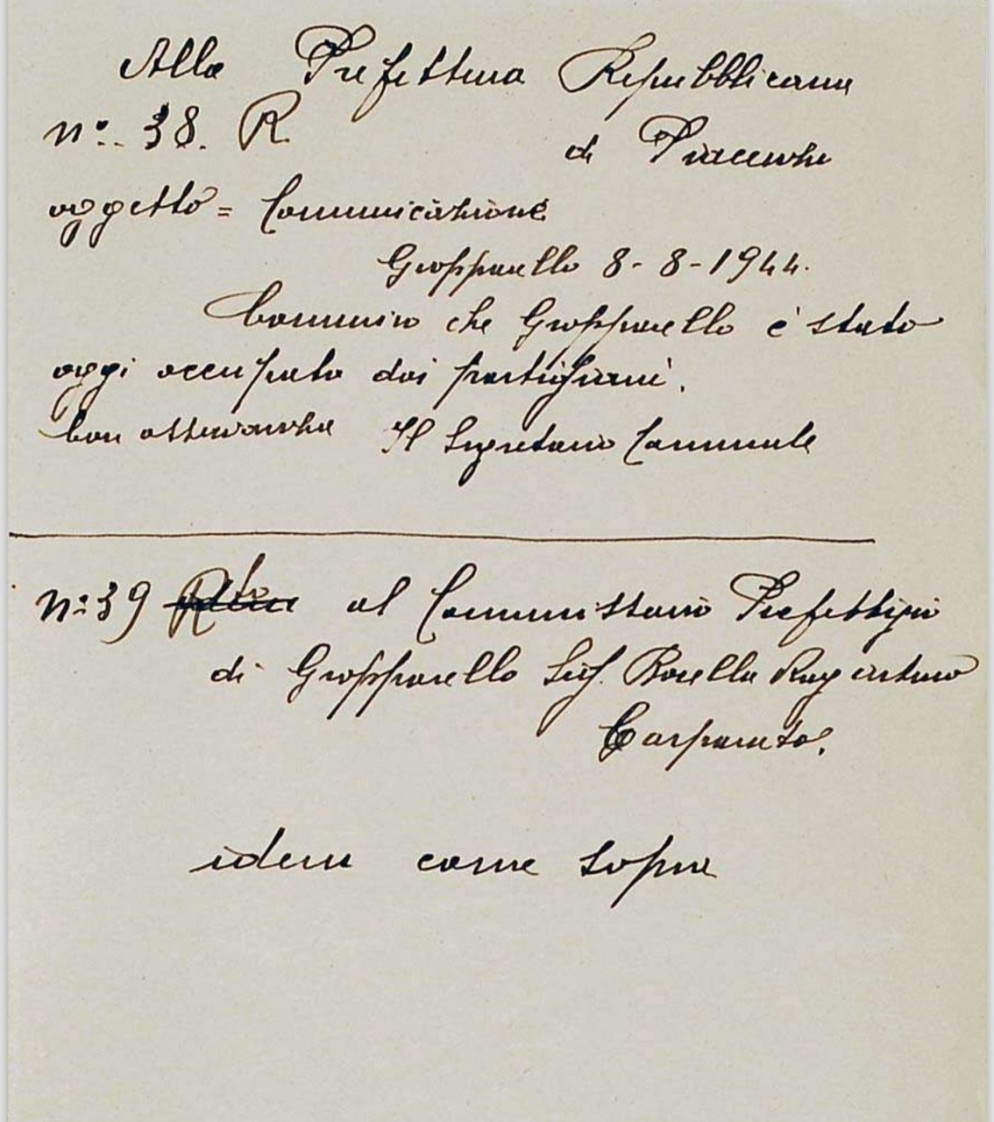 Alla Prefettura Repubblicana
n°. 38. R.
di Piacenza
oggetto = Comunicazione
Gropparello 8-8-1944.
Comunico che Gropparello è stato
oggi occupato dai partigiani.
Con osservanza Il Segretario Comunale
n: 39 al Commissario Prefettizio
di Gropparello Sig. Rag Arturo
Carpaneto.
idem come sopra